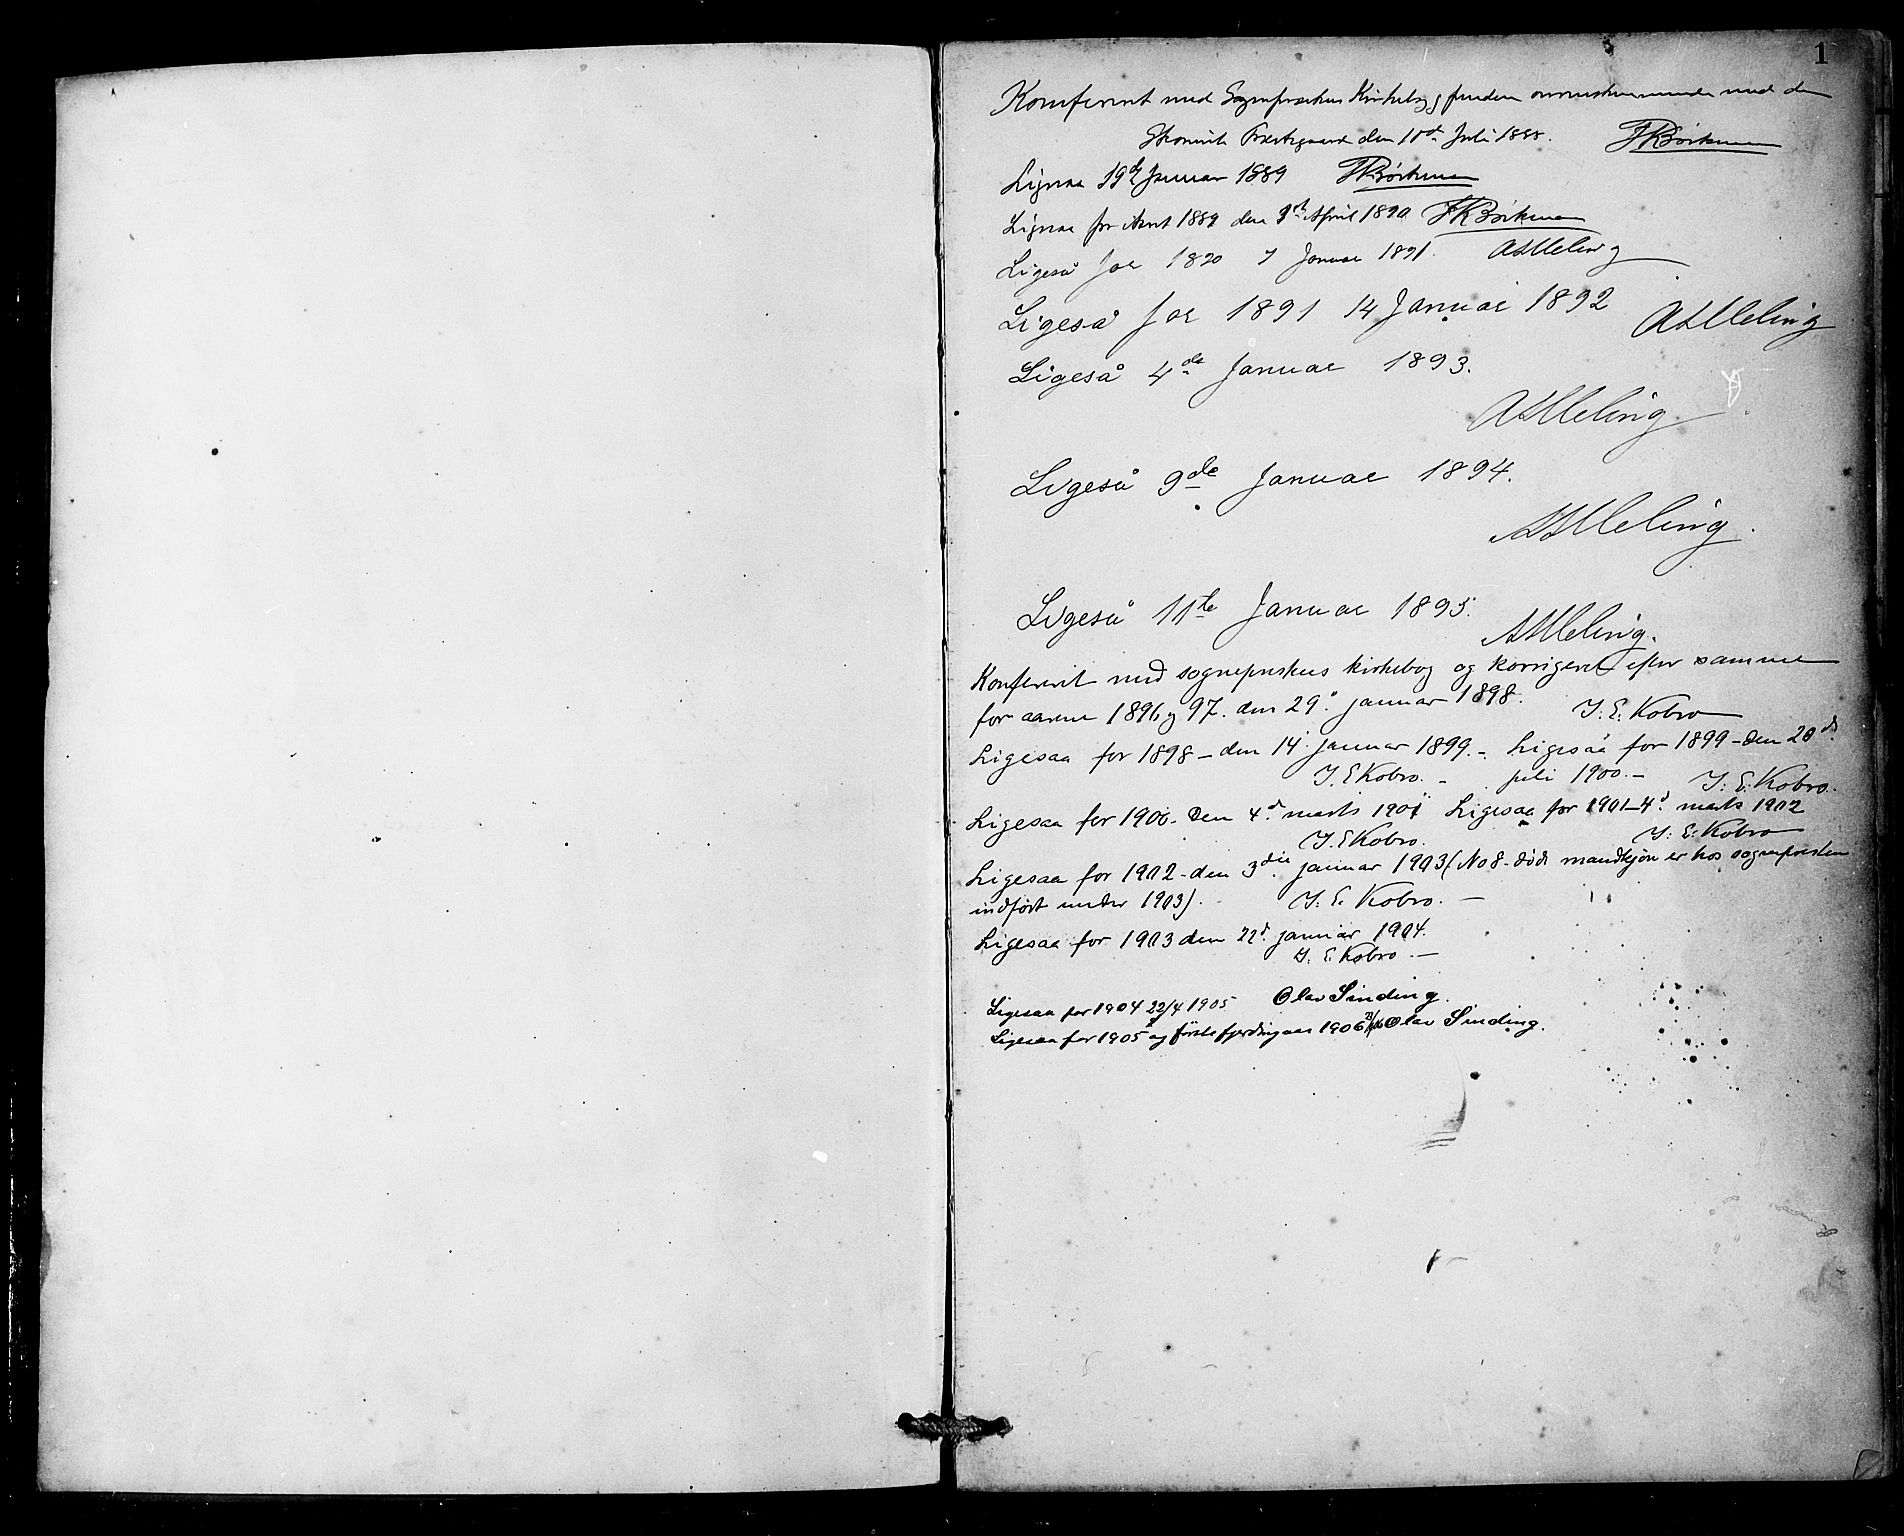 1
Konfereret med Sognepræstens Kirkebog funden overensstemmende med den
Præstegaard den 11te Juli 1888. Børkman
Ligesaa 19de Januar 1889
Ligesaa for Aaret 1889 den 9de April 1890
Ligeså for 1890 7 Januar 1891. ASMeling
Ligeså for 1891 14 Januar 1892 ASMeling
Ligeså 4de Januar 1893.
ASMeling
Ligeså 9de Januar 1894.
ASMeling.
Ligeså 11te Januar 1895.
ASMeling.
Konfereret med sogneprestens kirkebog og korrigeret efter samme
for aarene 1896 og 97. den 29. januar 1898. J. E. Kobro
Ligesaa for 1898 – den 14. januar 1899. – Ligesaa for 1899 – den 20de
J. E Kobro. – juli 1900. – J. E. Kobro.
Ligesaa for 1900 – den 4d. marts 1901 Ligesaa for 1901 – 4d. marts 1902
J. E Kobro. J. E. Kobro
Ligesaa for 1902 – den 3die januar 1903 (No 8 – døde mandkjøn er hos sognepresten
indført under 1903). J. E. Kobro. –
Ligesaa for 1903 den 22d. januar 1904.
J. E. Kobro –
Ligesaa for 1904 22/4 1905 Olav Sinding.
Ligesaa for 1905 og første fjerdingaar 1906 Olav Sinding.